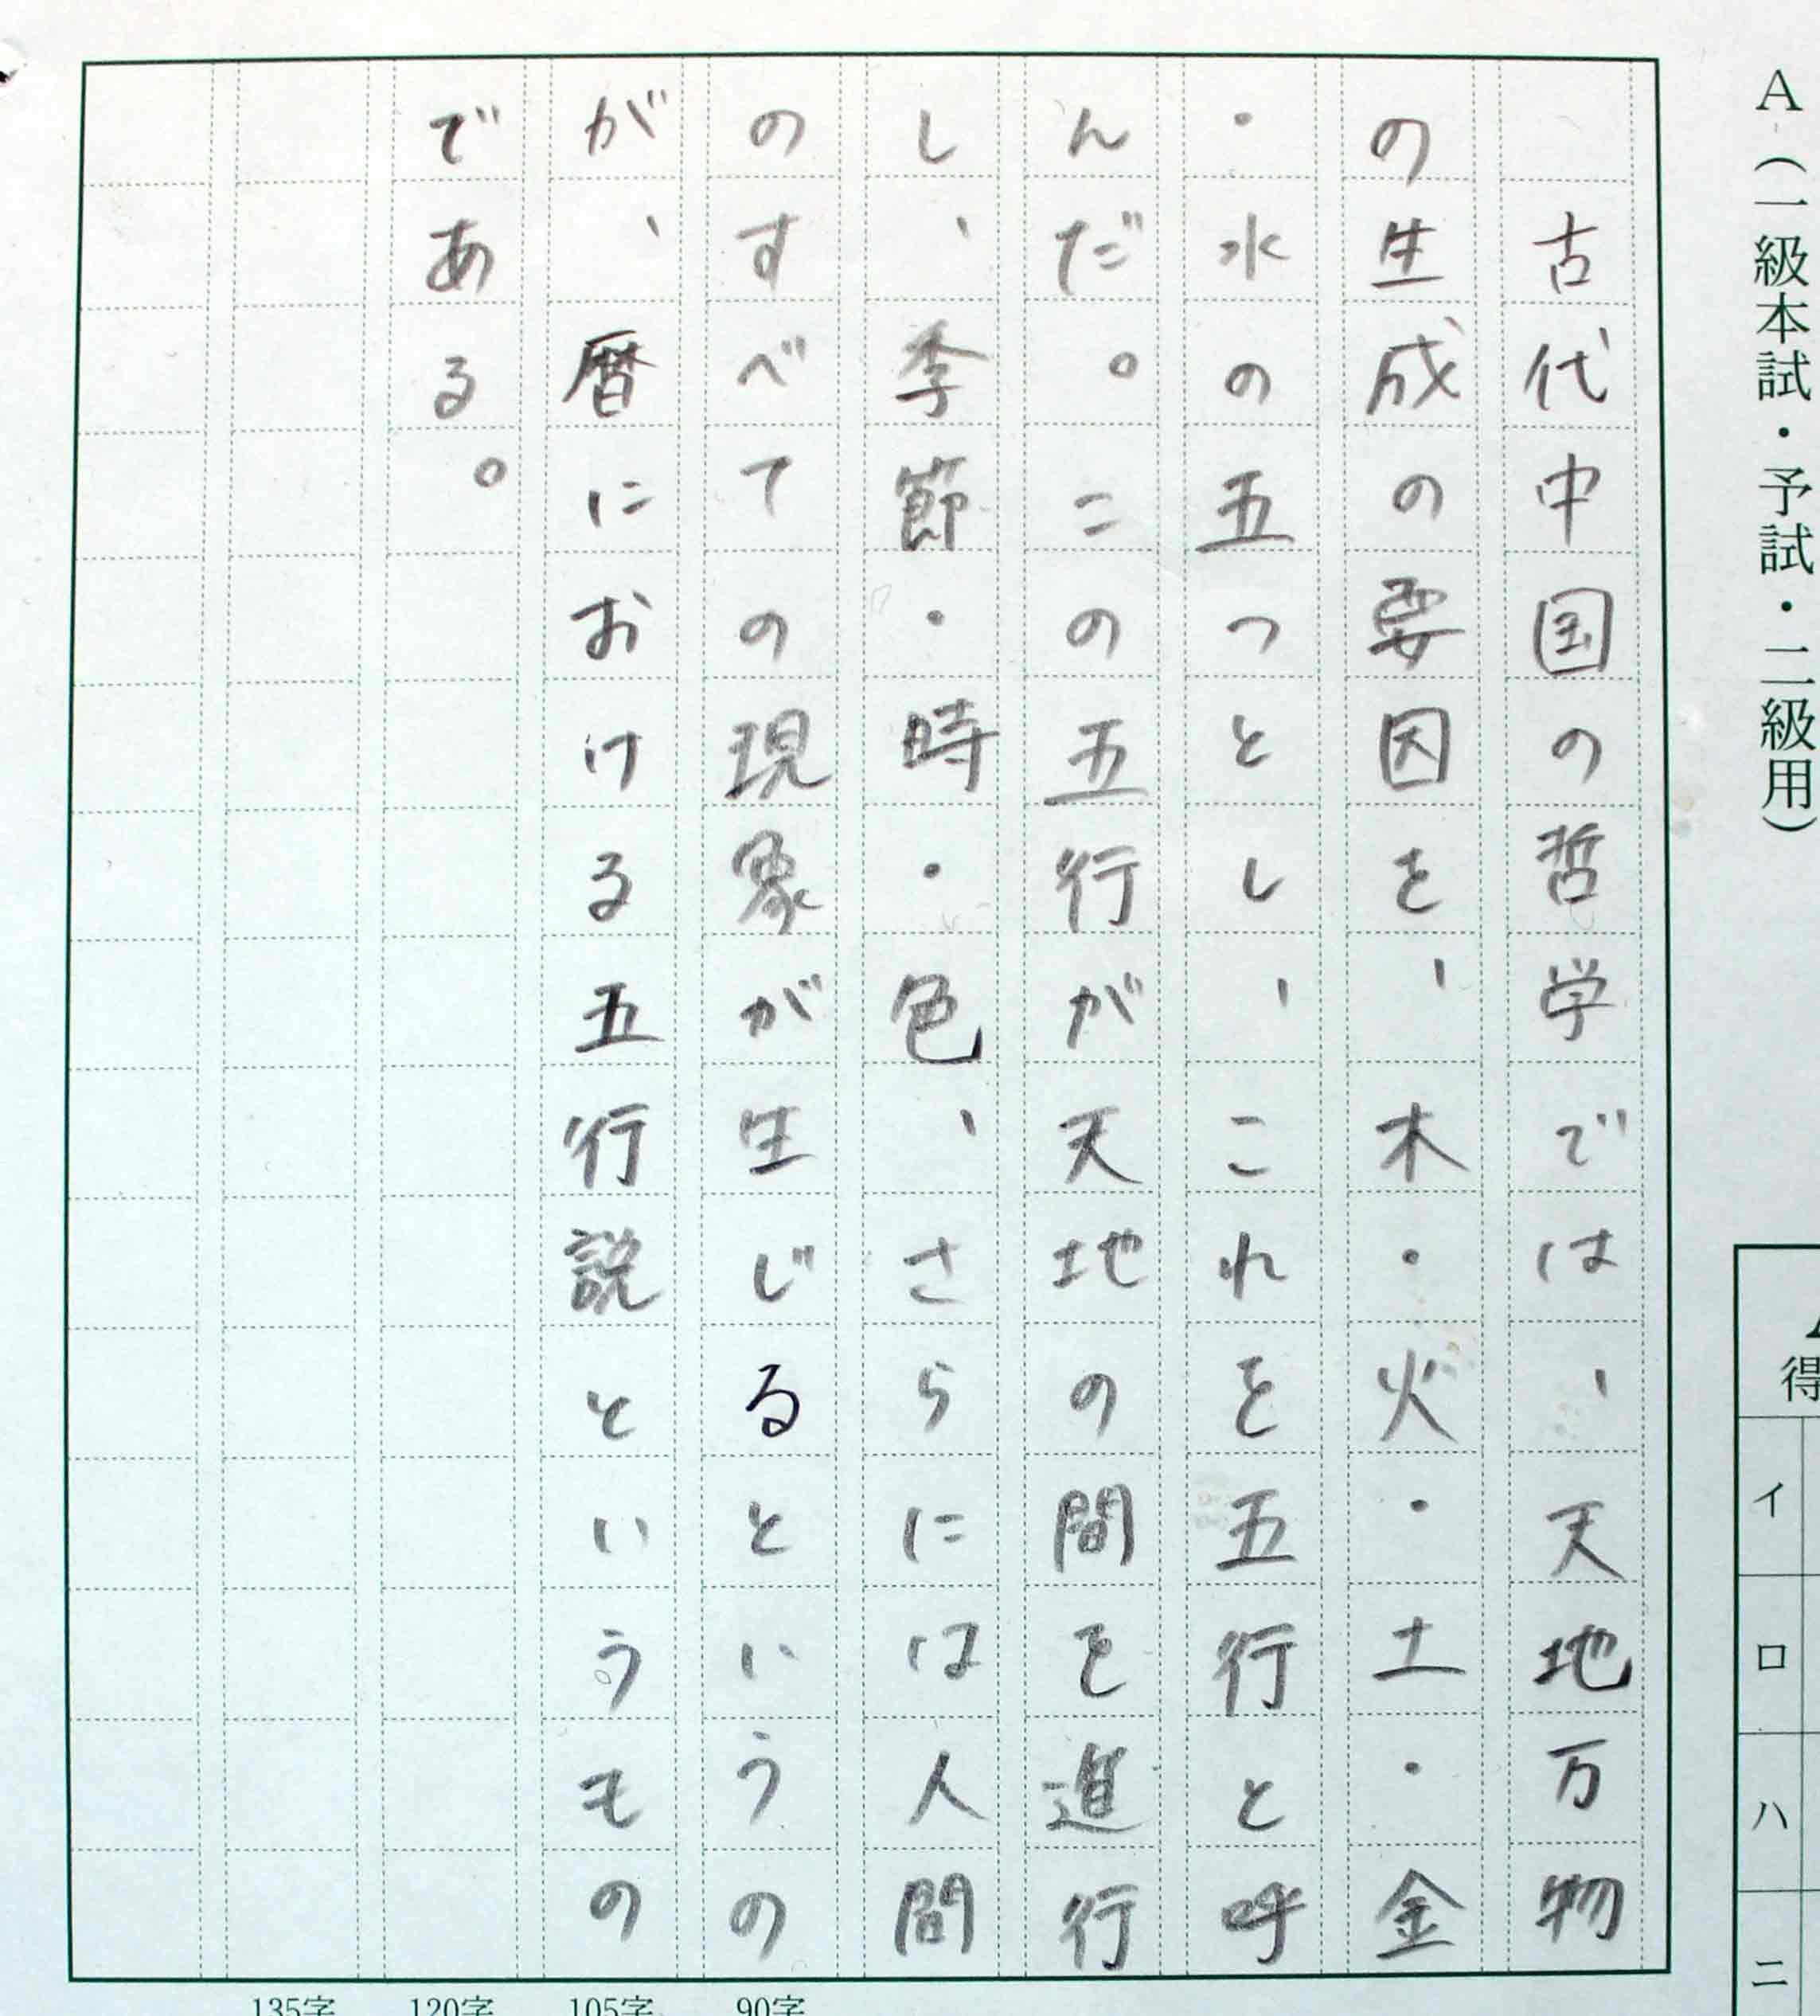 A（一級本試・予試・二級用）
古代中国の哲学では、天地万物
の生成の要因を、木・火・土・金
・水の五つとし、これを五行と呼
んだ。この五行が天地の間を進行
し、季節・時・色、さらには人間
のすべての現象が生じるというの
が、暦における五行説というもの
である。
得
イ
ロ
ハ
ニ
90字
105字
120字
135字